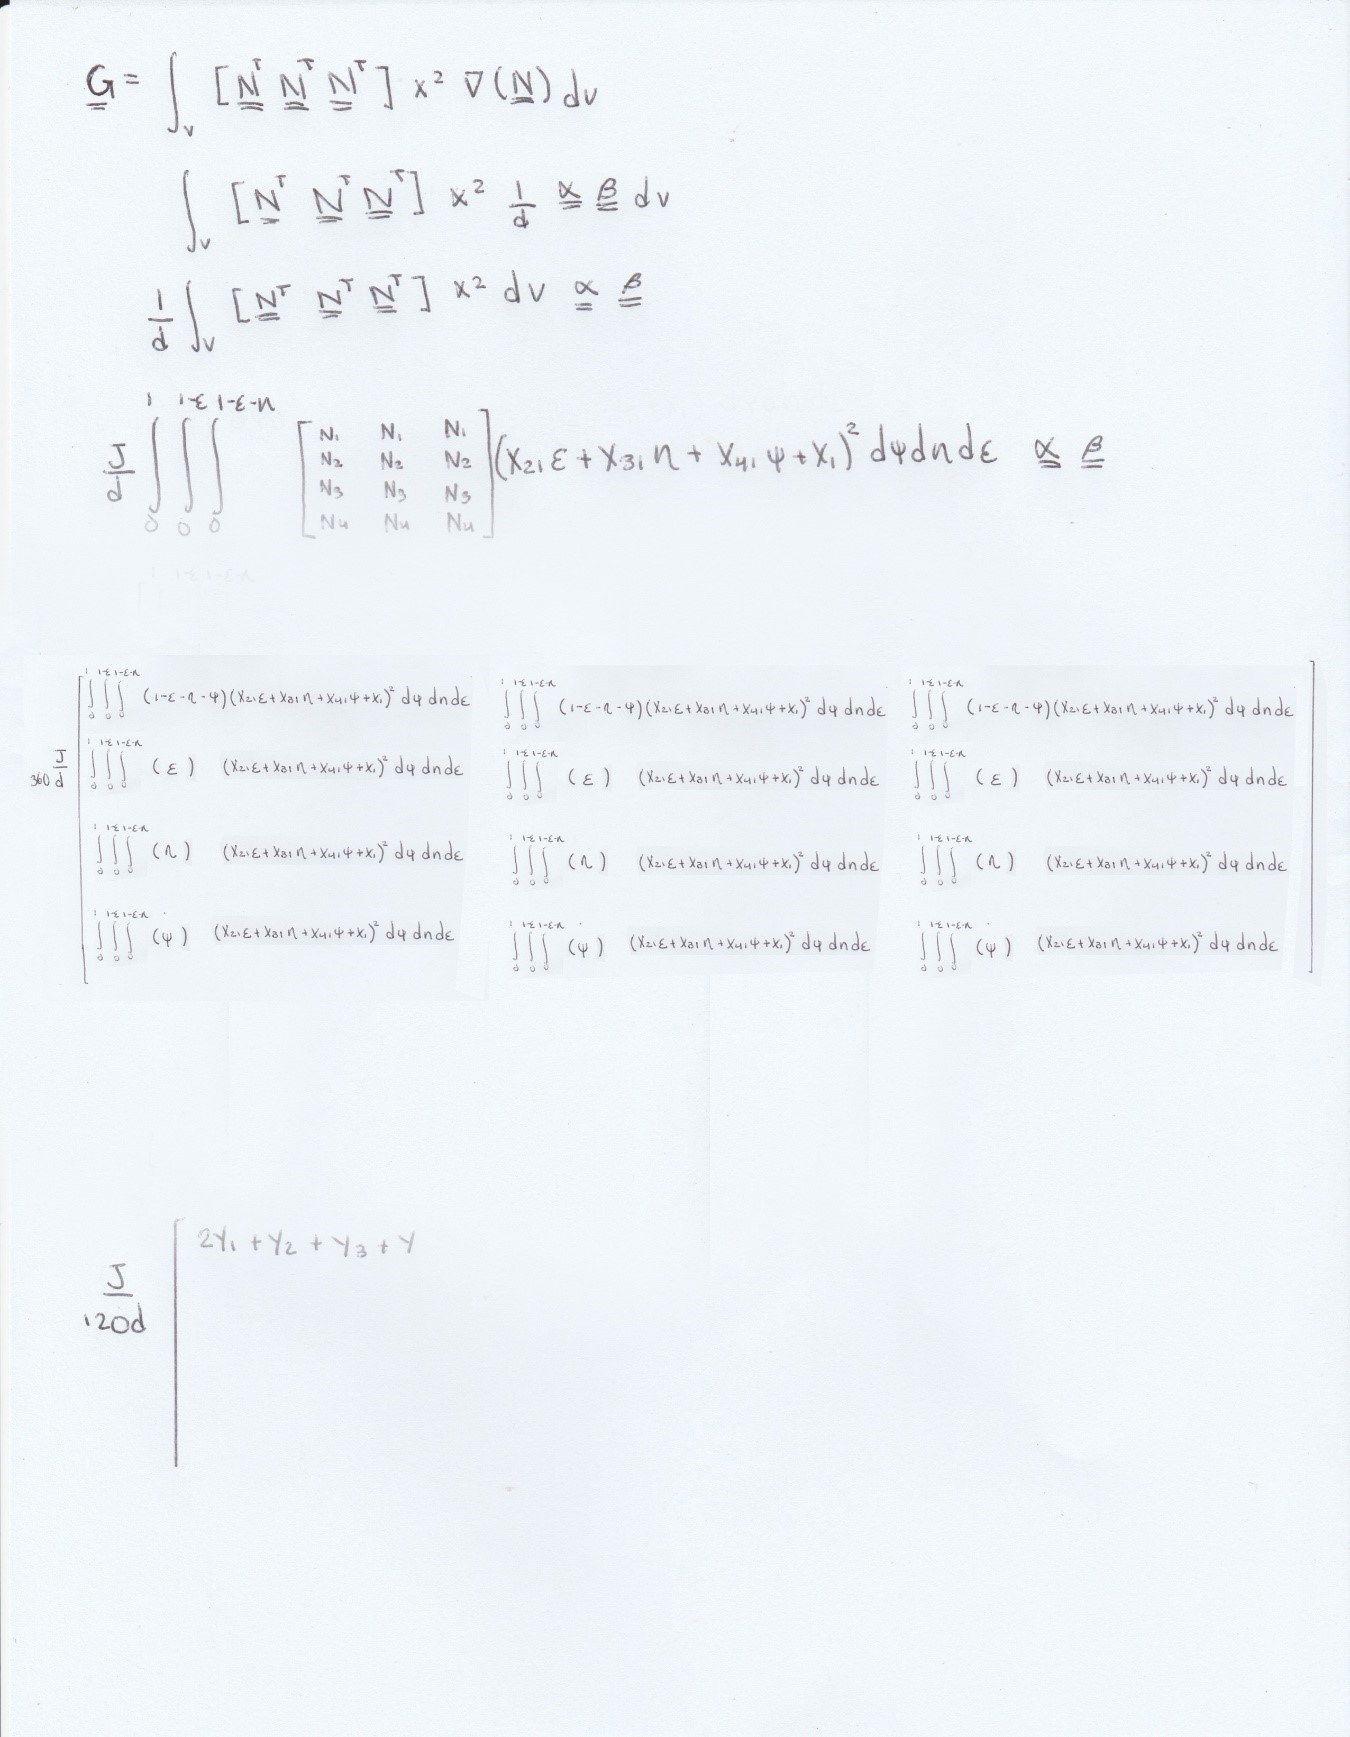 G = ∫_V [N^T N^T N^T] x² ∇(N) dv
∫_V [N^T N^T N^T] x² 1/d α β dv
1/d ∫_V [N^T N^T N^T] x² dv α β
J/d ∫_0^1 ∫_0^{1-ε} ∫_0^{1-ε-n} [N₁ N₁ N₁
N₂ N₂ N₂
N₃ N₃ N₃
N₄ N₄ N₄] (x₂₁ε + x₃₁n + x₄₁ψ + x₁)² dψ dn dε α β
360 J/d [∫_0^1 ∫_0^{1-ε} ∫_0^{1-ε-n} (1-ε-n-ψ)(x₂₁ε + x₃₁n + x₄₁ψ + x₁)² dψ dn dε ∫_0^1 ∫_0^{1-ε} ∫_0^{1-ε-n} (1-ε-n-ψ)(x₂₁ε + x₃₁n + x₄₁ψ + x₁)² dψ dn dε ∫_0^1 ∫_0^{1-ε} ∫_0^{1-ε-n} (1-ε-n-ψ)(x₂₁ε + x₃₁n + x₄₁ψ + x₁)² dψ dn dε
∫_0^1 ∫_0^{1-ε} ∫_0^{1-ε-n} (ε) (x₂₁ε + x₃₁n + x₄₁ψ + x₁)² dψ dn dε ∫_0^1 ∫_0^{1-ε} ∫_0^{1-ε-n} (ε) (x₂₁ε + x₃₁n + x₄₁ψ + x₁)² dψ dn dε ∫_0^1 ∫_0^{1-ε} ∫_0^{1-ε-n} (ε) (x₂₁ε + x₃₁n + x₄₁ψ + x₁)² dψ dn dε
∫_0^1 ∫_0^{1-ε} ∫_0^{1-ε-n} (n) (x₂₁ε + x₃₁n + x₄₁ψ + x₁)² dψ dn dε ∫_0^1 ∫_0^{1-ε} ∫_0^{1-ε-n} (n) (x₂₁ε + x₃₁n + x₄₁ψ + x₁)² dψ dn dε ∫_0^1 ∫_0^{1-ε} ∫_0^{1-ε-n} (n) (x₂₁ε + x₃₁n + x₄₁ψ + x₁)² dψ dn dε
∫_0^1 ∫_0^{1-ε} ∫_0^{1-ε-n} (ψ) (x₂₁ε + x₃₁n + x₄₁ψ + x₁)² dψ dn dε ∫_0^1 ∫_0^{1-ε} ∫_0^{1-ε-n} (ψ) (x₂₁ε + x₃₁n + x₄₁ψ + x₁)² dψ dn dε ∫_0^1 ∫_0^{1-ε} ∫_0^{1-ε-n} (ψ) (x₂₁ε + x₃₁n + x₄₁ψ + x₁)² dψ dn dε]
J/120d [2y₁ + y₂ + y₃ + y